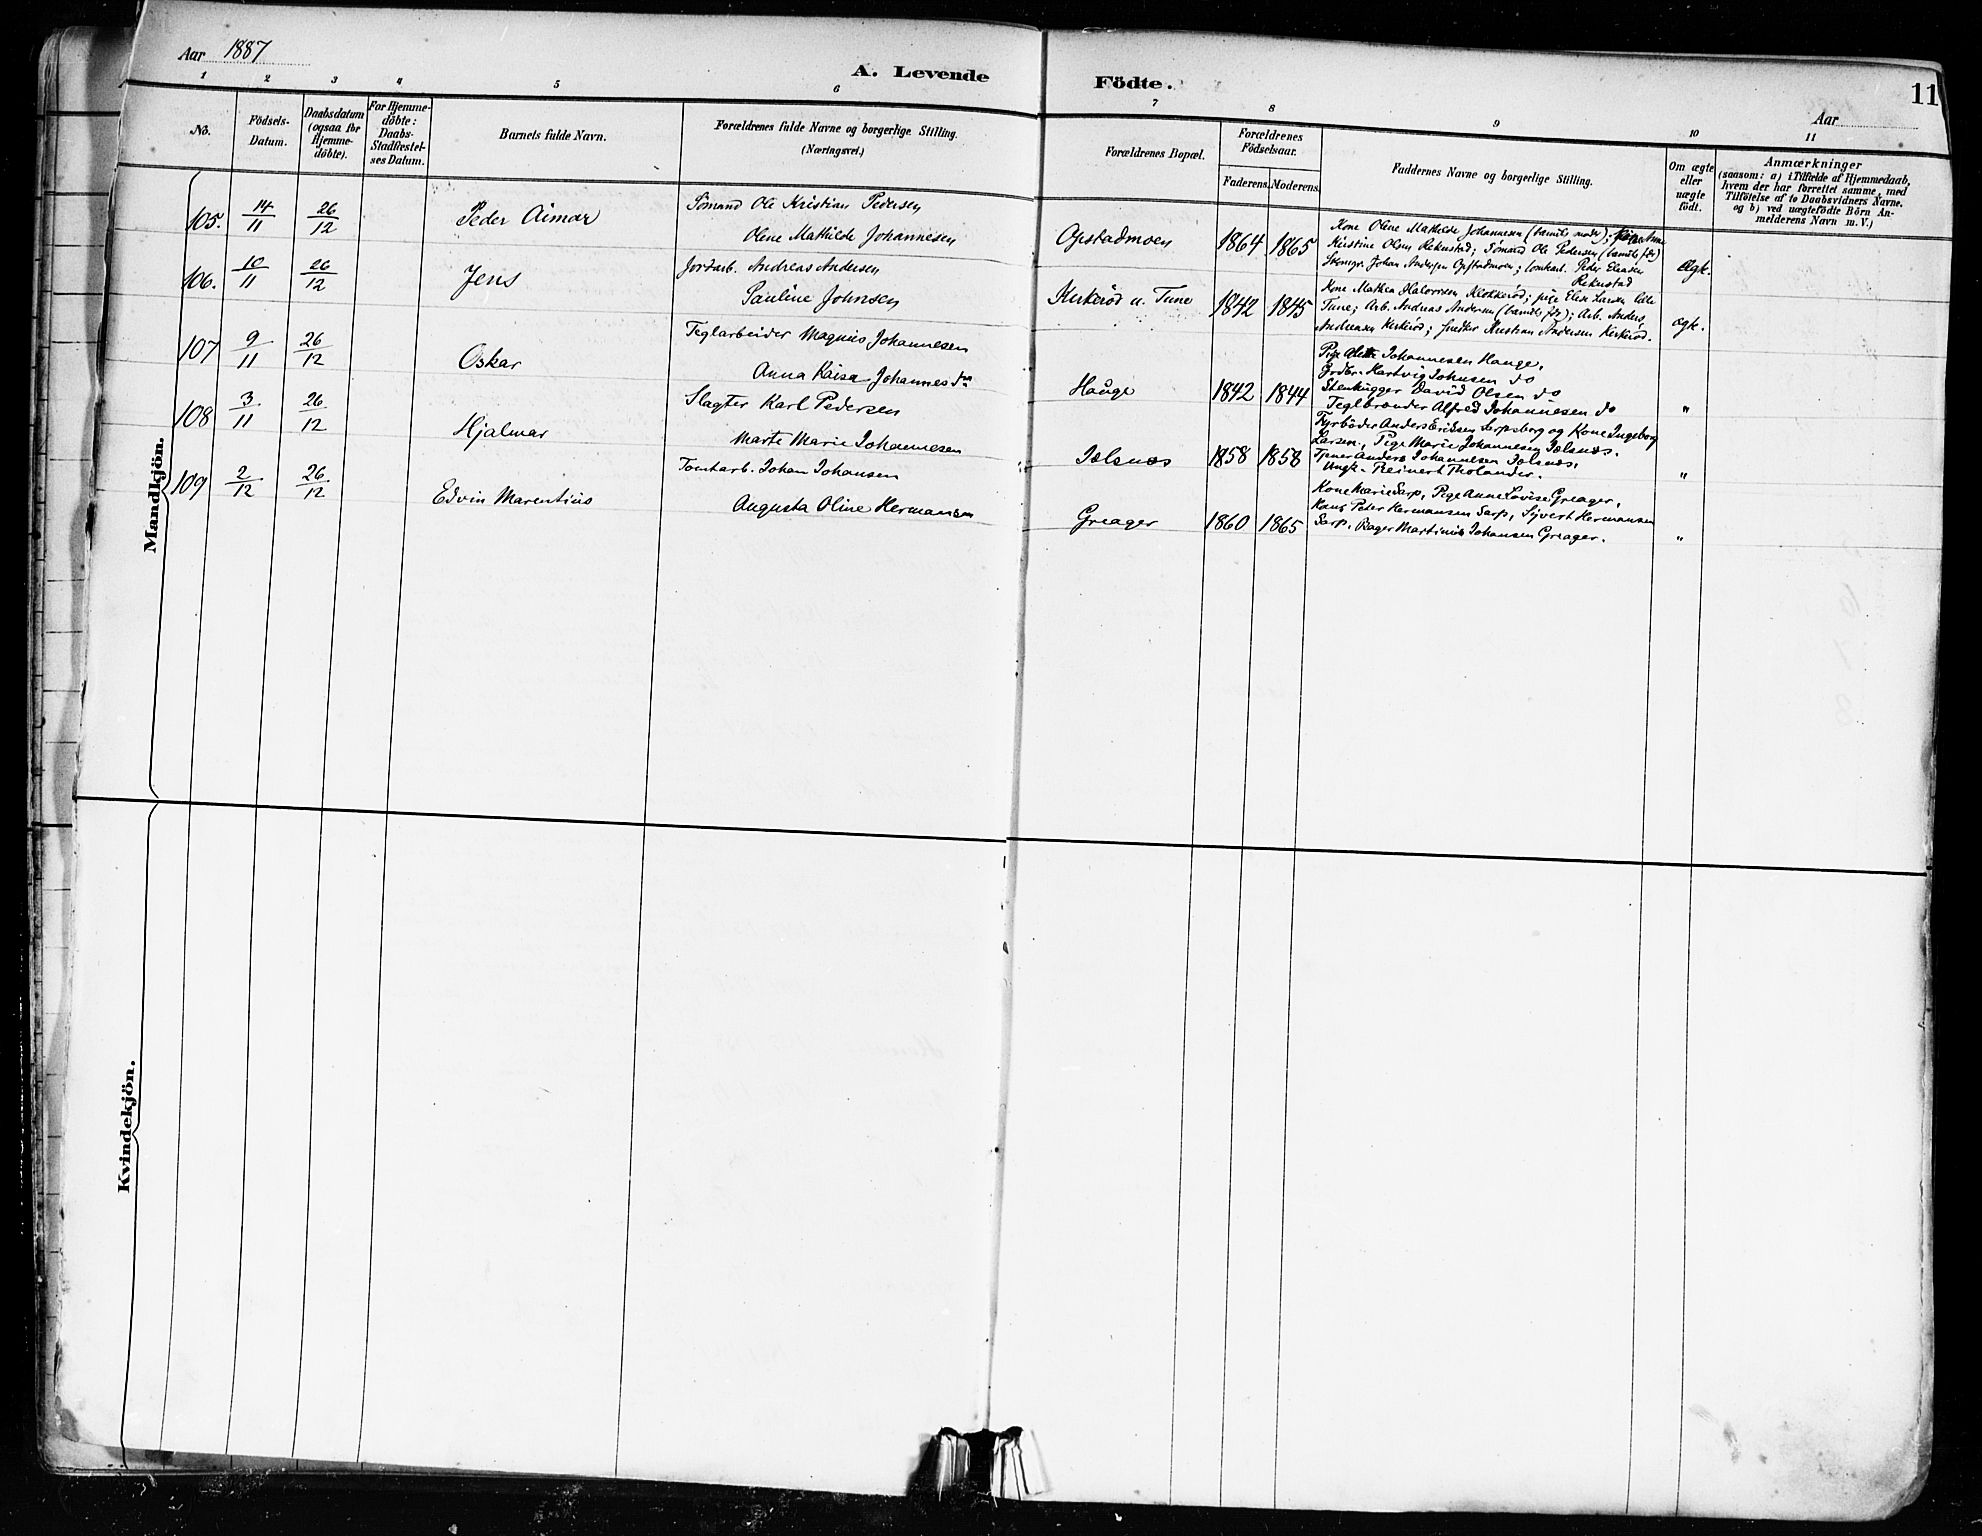 Aar 1887
A. Levende
Födte.
Aar
11
1 2 3 4 5 6 7 8 9 10 11
No.
Födsels-
Datum.
Daabsdatum
(ogsaa for
Hjemme-
döbte).
For Hjemme-
döbte:
Daabs-
Stadfæstel-
ses Datum.
Barnets fulde Navn.
Forældrenes fulde Navne og borgerlige Stilling.
(Næringsvei.)
Forældrenes Bopæl.
Forældrenes
Födselsaar.
Faderens. Moderens.
Faddernes Navne og borgerlige Stilling.
Om ægte
eller
uægte
födt.
Anmærkninger
(saasom: a) i Tilfælde af Hjemmedaab,
hvem der har forrettet samme, med
Tilföielse af to Daabsvidners Navne.
og b) ved uægtefödte Börn An-
melderens Navn m. V.)
Mandkjön.
105. 14/11 26/12 Peder Aimar
Sömand Ole Kristian Pedersen
Olene Mathilde Johannesen
Opstadmoen 1864 1865
Kone Olene Mathilde Johannesen (barnets moder); Pige Anne
Kristine Olsen Rekustad; Sömand Ole Pedersen (barnets fdr)
Stengr. Johan Andersen Opstadmoen; Ungkarl. Peder Eliasen
Rekustad
Ægt.
106. 10/11 26/12 Jens
Jordarb. Andreas Andersen
Pauline Johnsen
Kirkeröd u. Tune 1842 1845
Kone Mathea Halvorsen Klokkeröd; pige Elise Larsen lille
Tune; Arb. Andreas Andersen (barnets fdr); Arb. Anders
Andreasen Kirkeröd; Snedker Kristian Andersen Kirkeröd.
ægt.
107 9/11 26/12 Oskar
Teglarbeider Magnus Johannesen
Anna Kaisa Johannesdr
Hauge 1842 1844
Pige Johannesen Hauge,
Hartvig Johnsen do
Stenhugger David Olsen do
Teglbrænder Alfred Johannesen do
"
108 3/11 26/12 Hjalmar
Slagter Karl Pedersen
Marte Marie Johannesen
Jelsnæs 1858 1858
Fyrböder Anders Eriksen Sarpsborg og Kone Ingeborg
Larsen, Pige Marie Johannesen Jelsnæs.
Tjener Anders Johannesen Jelsnæs,
Ungk. Reinert Tholander.
"
109 2/12 26/12 Edvin Marentius
Tomtarb. Johan Johansen
Augusta Oline Hermansen
Greager 1860 1865
Kone Marie Sarp, Pige Anne Lovise Greager,
Peter Hermansen Sarp, Sivert Hermansen
Sarp, Bager Martinius Johansen Greager.
"
Kvindekjön.